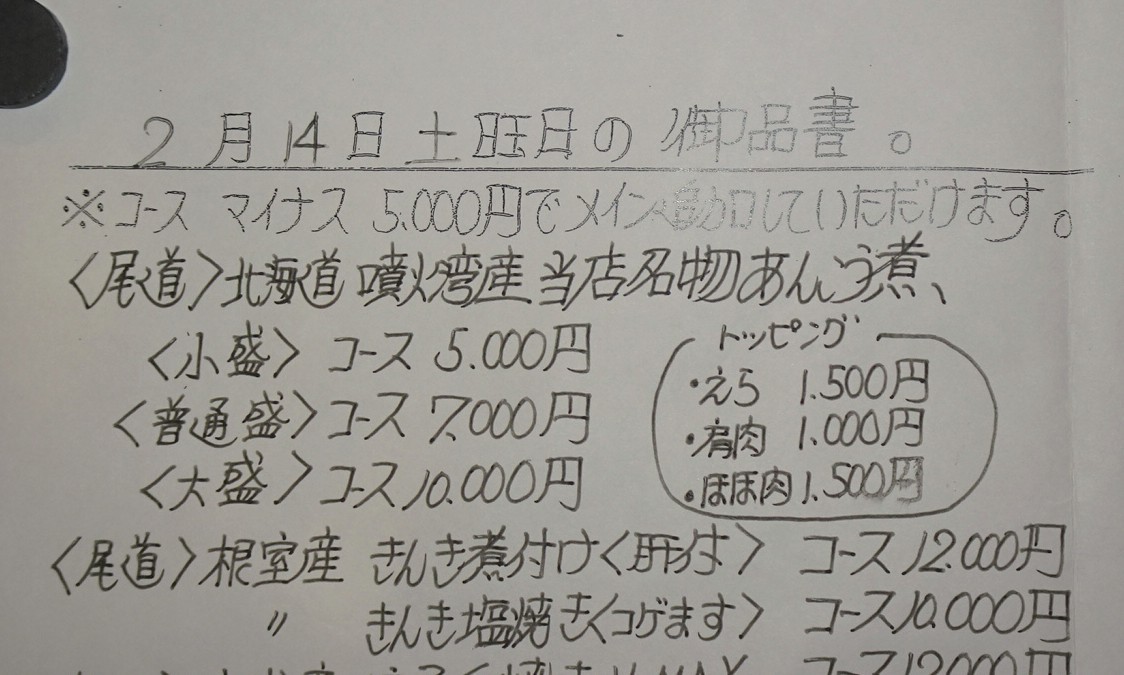 2月14日土旺日の御品書。
※コース マイナス 5.000円でメイン追加していただけます。
〈尾道〉北海道噴火湾産当店名物あんこう煮、
〈小盛〉コース 5.000円
〈普通盛〉コース 7.000円
〈大盛〉コース10.000円
トッピング
・えら 1.500円
・肩肉 1.000円
・ほほ肉1.500円
〈尾道〉根室産 きんき煮付け〈肝付〉 コース12.000円
〃 きんき塩焼き〈コゲます〉 コース10.000円
コース12000円